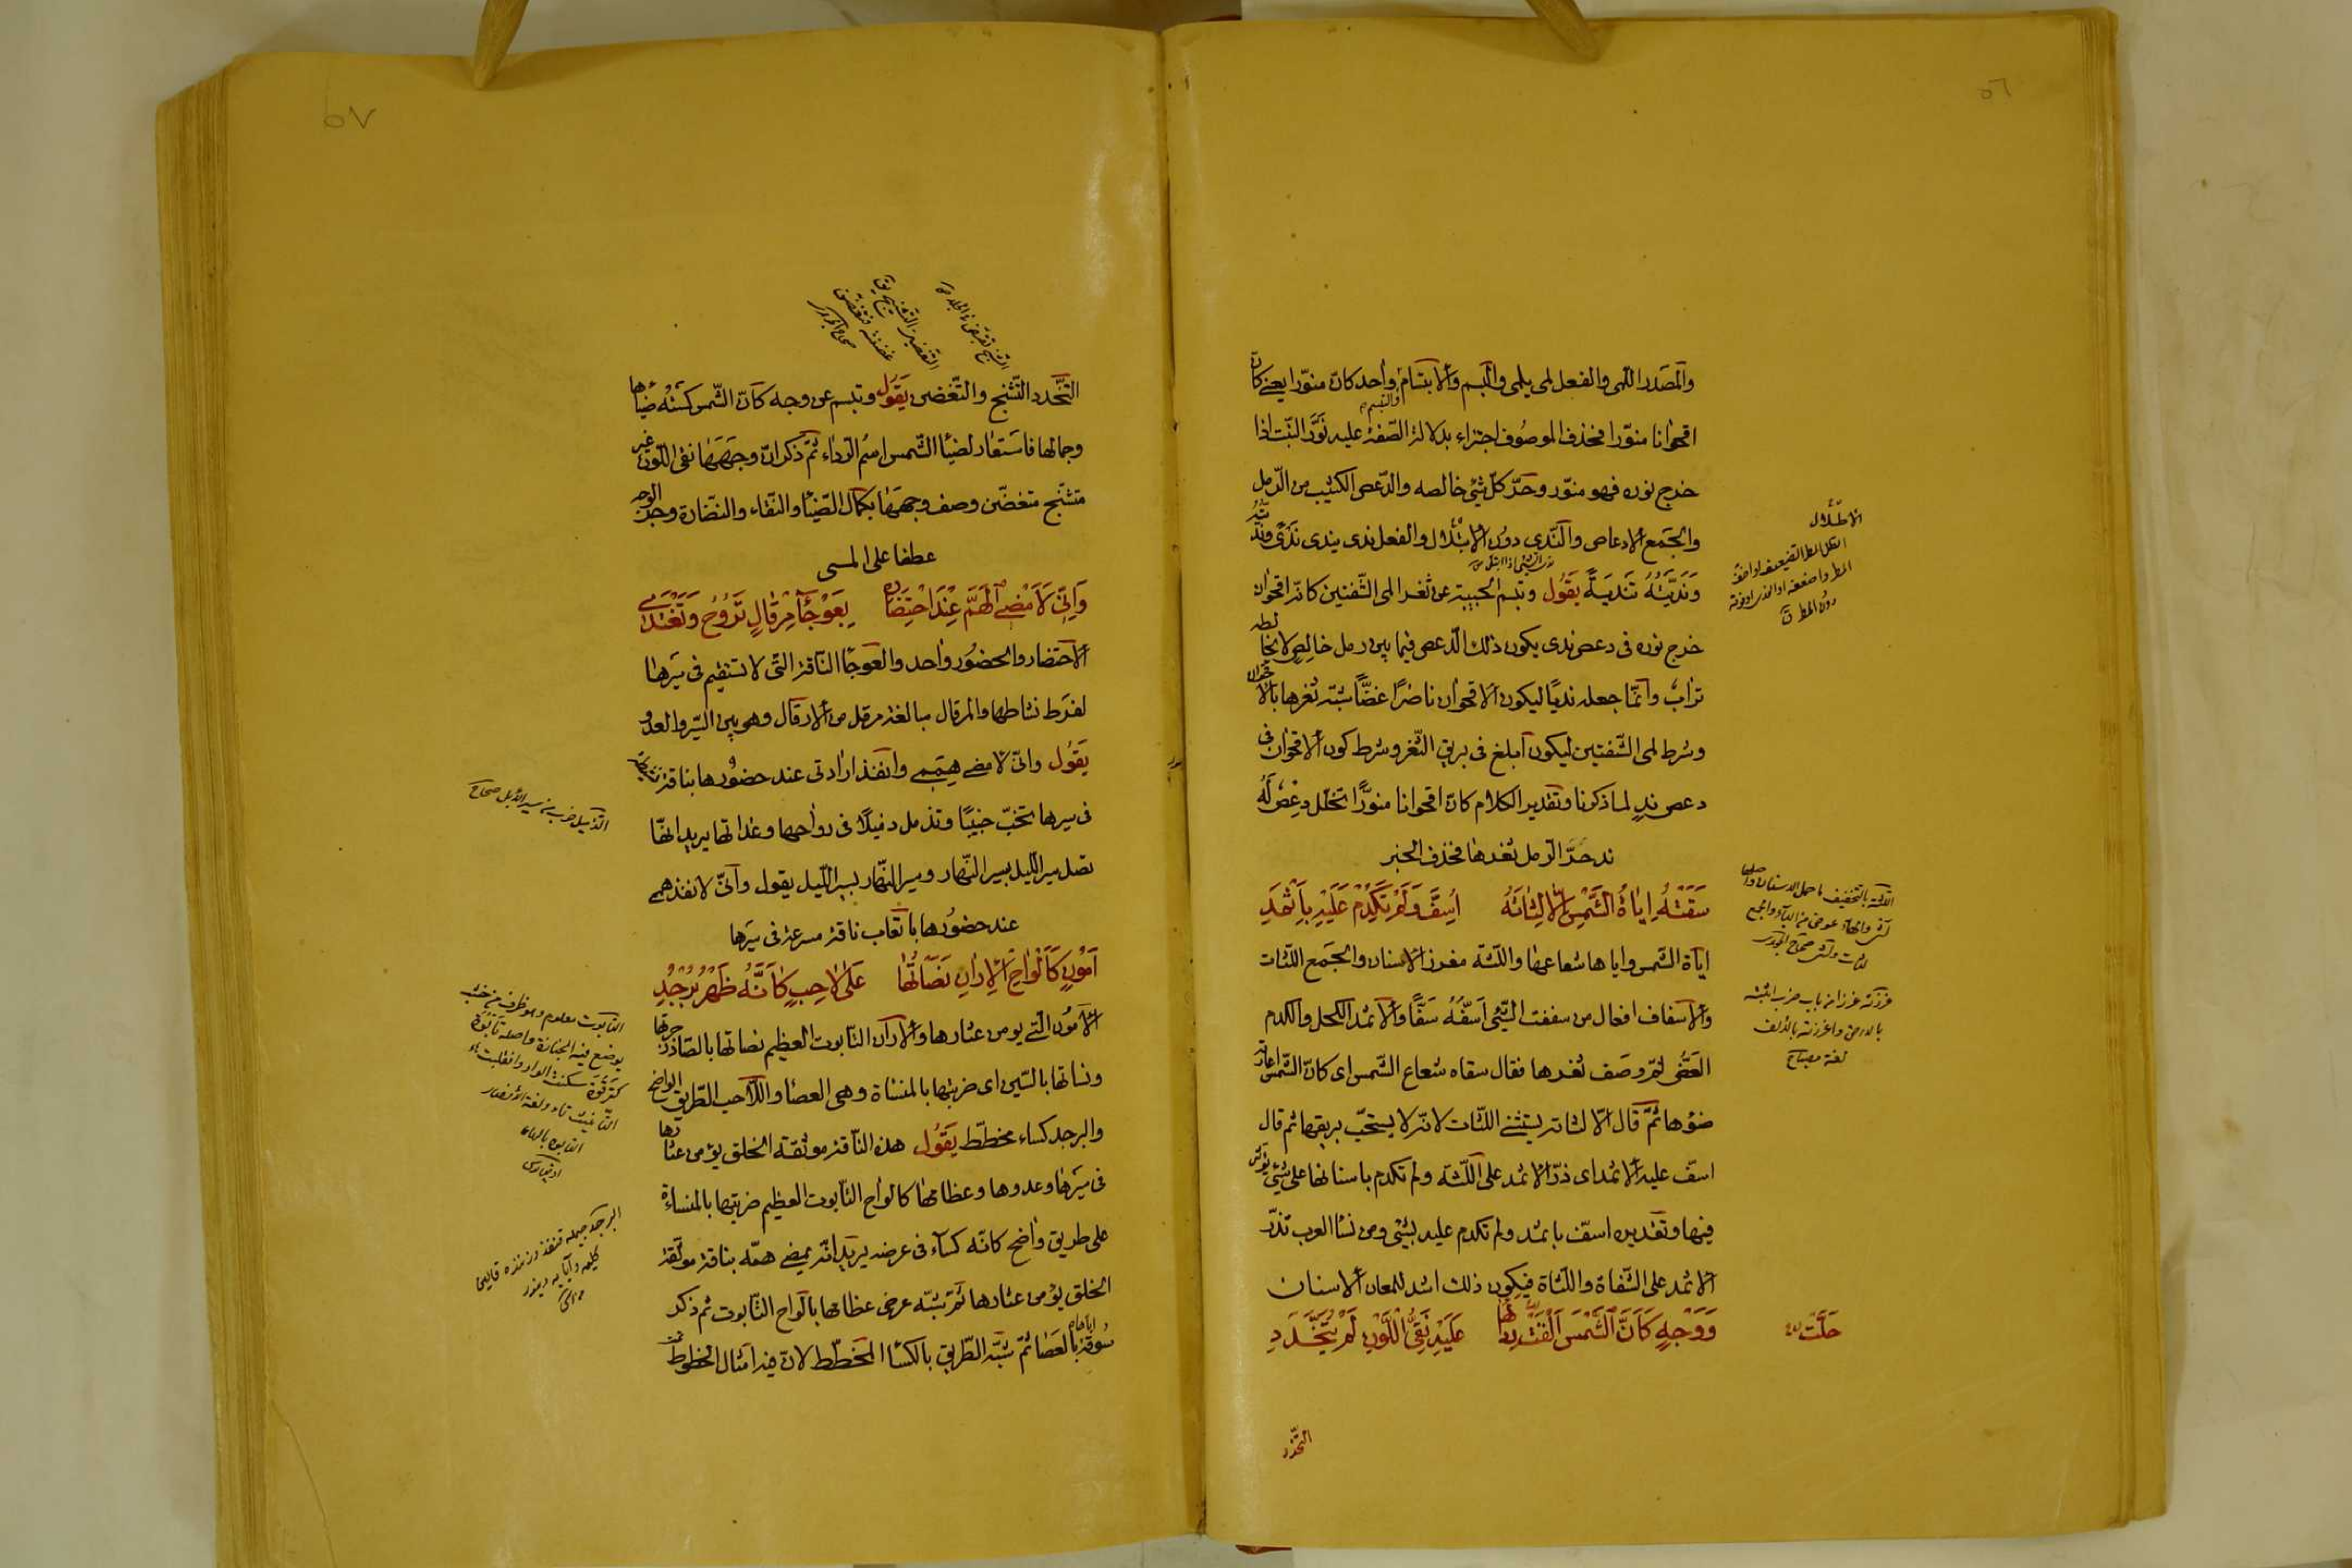 ٥٦
والمصدر اللمى والفعل لمى يلمى والبسم والابتسام والتبسم واحد كان منوّرا يعنى كانّ
اقحوانا منوّرا فحذف الموصُوف اجتزاء بدلالة الصّفة عليه نَوَّرَ النّبت اذا
خرج نوره فهو منوّر وحَرّ كلّ شئ خالصه والدّعص الكثيب من الرّمل
والجَمع الادعاص والنّدى دون الابتلال والفعل ندى يندى نَدًى
وَنَدَّيْتُهُ تَندِيَةً يَقُول وتبسم الحبيبة عن ثغر المى الشّفتين كانّه اقحوان
خرج نوره فى دعص ندى يكون ذلك الدّعص فيما بين رمل خالِصٍ لا يخالطه
ترابٌ وانّما جعله نديًا ليكون الاقحوان ناضرًا غضًّا شبّه ثغرها بالاقحوان
وشرط لمى الشّفتين ليكون ابلغ فى بريق الثّغر وشرط كون الاقحوان فى
دعص ندٍ لما ذكرنا وتقدير الكلام كانّ اقحوانا منوّرًا تخلّل دِعْصٌ لَهُ
ند حَرَّ الرّمل ثغرها فحذف الخبر
سَقَتْهُ اِيَاةُ الشَّمْسِ اِلّا لِثَاتَهُ اُسِفَّ وَلَمْ تَكْدِمْ عَلَيْهِ بِاِثْمَدِ
اياة الشّمس واياها شعاعها واللثة مغرز الاسنان والجَمع اللثات
والاسفاف افعال من سففت الشّئ اَسَفُّهُ سَفًّا والاثمد الكحل والكدم
العَضّ ثمّ وصَف ثغرها فقال سقاه شعاع الشّمس اى كانّ الشّمس اعارته
ضوءها ثمّ قال الّا لثاته يستثنى اللثات لانّه لا يستحبّ بريقها ثم قال
اسفّ عليه الاثمد اى ذرّ الاثمد على اللّثة ولم تكدم باسنانها على شئ يؤثّر
فيها وتقديره اسفّ باثمد ولم تكدم عليه بشئ ومن نساء العرب تذرّ
الاثمد على الشّفاة واللّثاة فيكون ذلك اشد للمعان الاسنان
وَوَجْهٍ كَاَنَّ الشَّمْسَ اَلْقَتْ رِدَاءَهَا عَلَيْهِ نَقِىُّ اللَّوْنِ لَمْ يَتَخَدَّدِ
حَلَّتْ
التّخدّد
الاطّلال
غرزته غرزا من باب ضرب اثبته
بالارض واغرزته بالالف
لغة مصباح
٥٧
التّخدّد التّشنج والتّغضن يَقُول وتبسم عن وجه كانّ الشّمس كسته ضياءها
وجمالها فاستعار لضياء الشّمس اسم الرّداء ثمّ ذكر انّ وجهها نقى اللّون غير
متشنّج متغضّن وصف وجهها بكمال الضّياء والنّقاء والنّضارة وجرّ الوجه
عطفا على المى
وَاِنِّى لَاَمْضِى الْهَمَّ عِنْدَ احْتِضَارِهِ بِعَوْجَاءَ مِرْقَالٍ تَرُوْحُ وَتَغْتَدِى
الاحتضار والحضُور واحد والعَوجاء النّاقة التّى لا تستقيم فى سَيرها
لفرَط نشاطها والمرقال مبالغة مرقل من الارقال وهو بين السّير والعدو
يَقُول وانّى لامضى هِمَمِى وانفذ ارادتى عند حضُورها بناقة نشيطة
فى سيرها تخبّ خببًا وتذمل ذميلًا فى رواحها وغدائها يريد انها
تصل سير اللّيل بسير النّهار وسير النّهار بسير اللّيل يقول وانّى لانفذ همى
عند حضُورها باتعاب ناقة مسرعة فى سَيرها
اَمُوْنٍ كَاَلْوَاحِ الْاِرَانِ نَصَاْتُهَا عَلَى لَاحِبٍ كَاَنَّهُ ظَهْرُ بُرْجُدِ
الامُون التى يومن عثارها والاران التابوت العظيم نصاتها بالصّاد زجرتها
ونساتها بالسّين اى ضربتها بالمنساة وهى العصا واللّاحب الطّريق الواضح
والبرجد كساء مخطّط يَقُول هذه النّاقة موثقة الخلق يؤمن عثارها
فى سَيرها وعدوها وعظامها كالواح التّابوت العظيم ضربتها بالمنساءة
على طريق واضح كانّه كساء فى عرضه يريد انّه يمضى همّه بناقة موثّقة
الخلق يؤمن عثارها ثمّ شبّه عرض عظامها بالواح التّابوت ثم ذكر
سُوقه اياها بالعَصا ثمّ شبّه الطّريق بالكساء المخطّط لانّ فيه امثال الخطوط
التابوت معلوم وهو ظرف من خشب
يوضع فيه الجنازة واصله تابوة